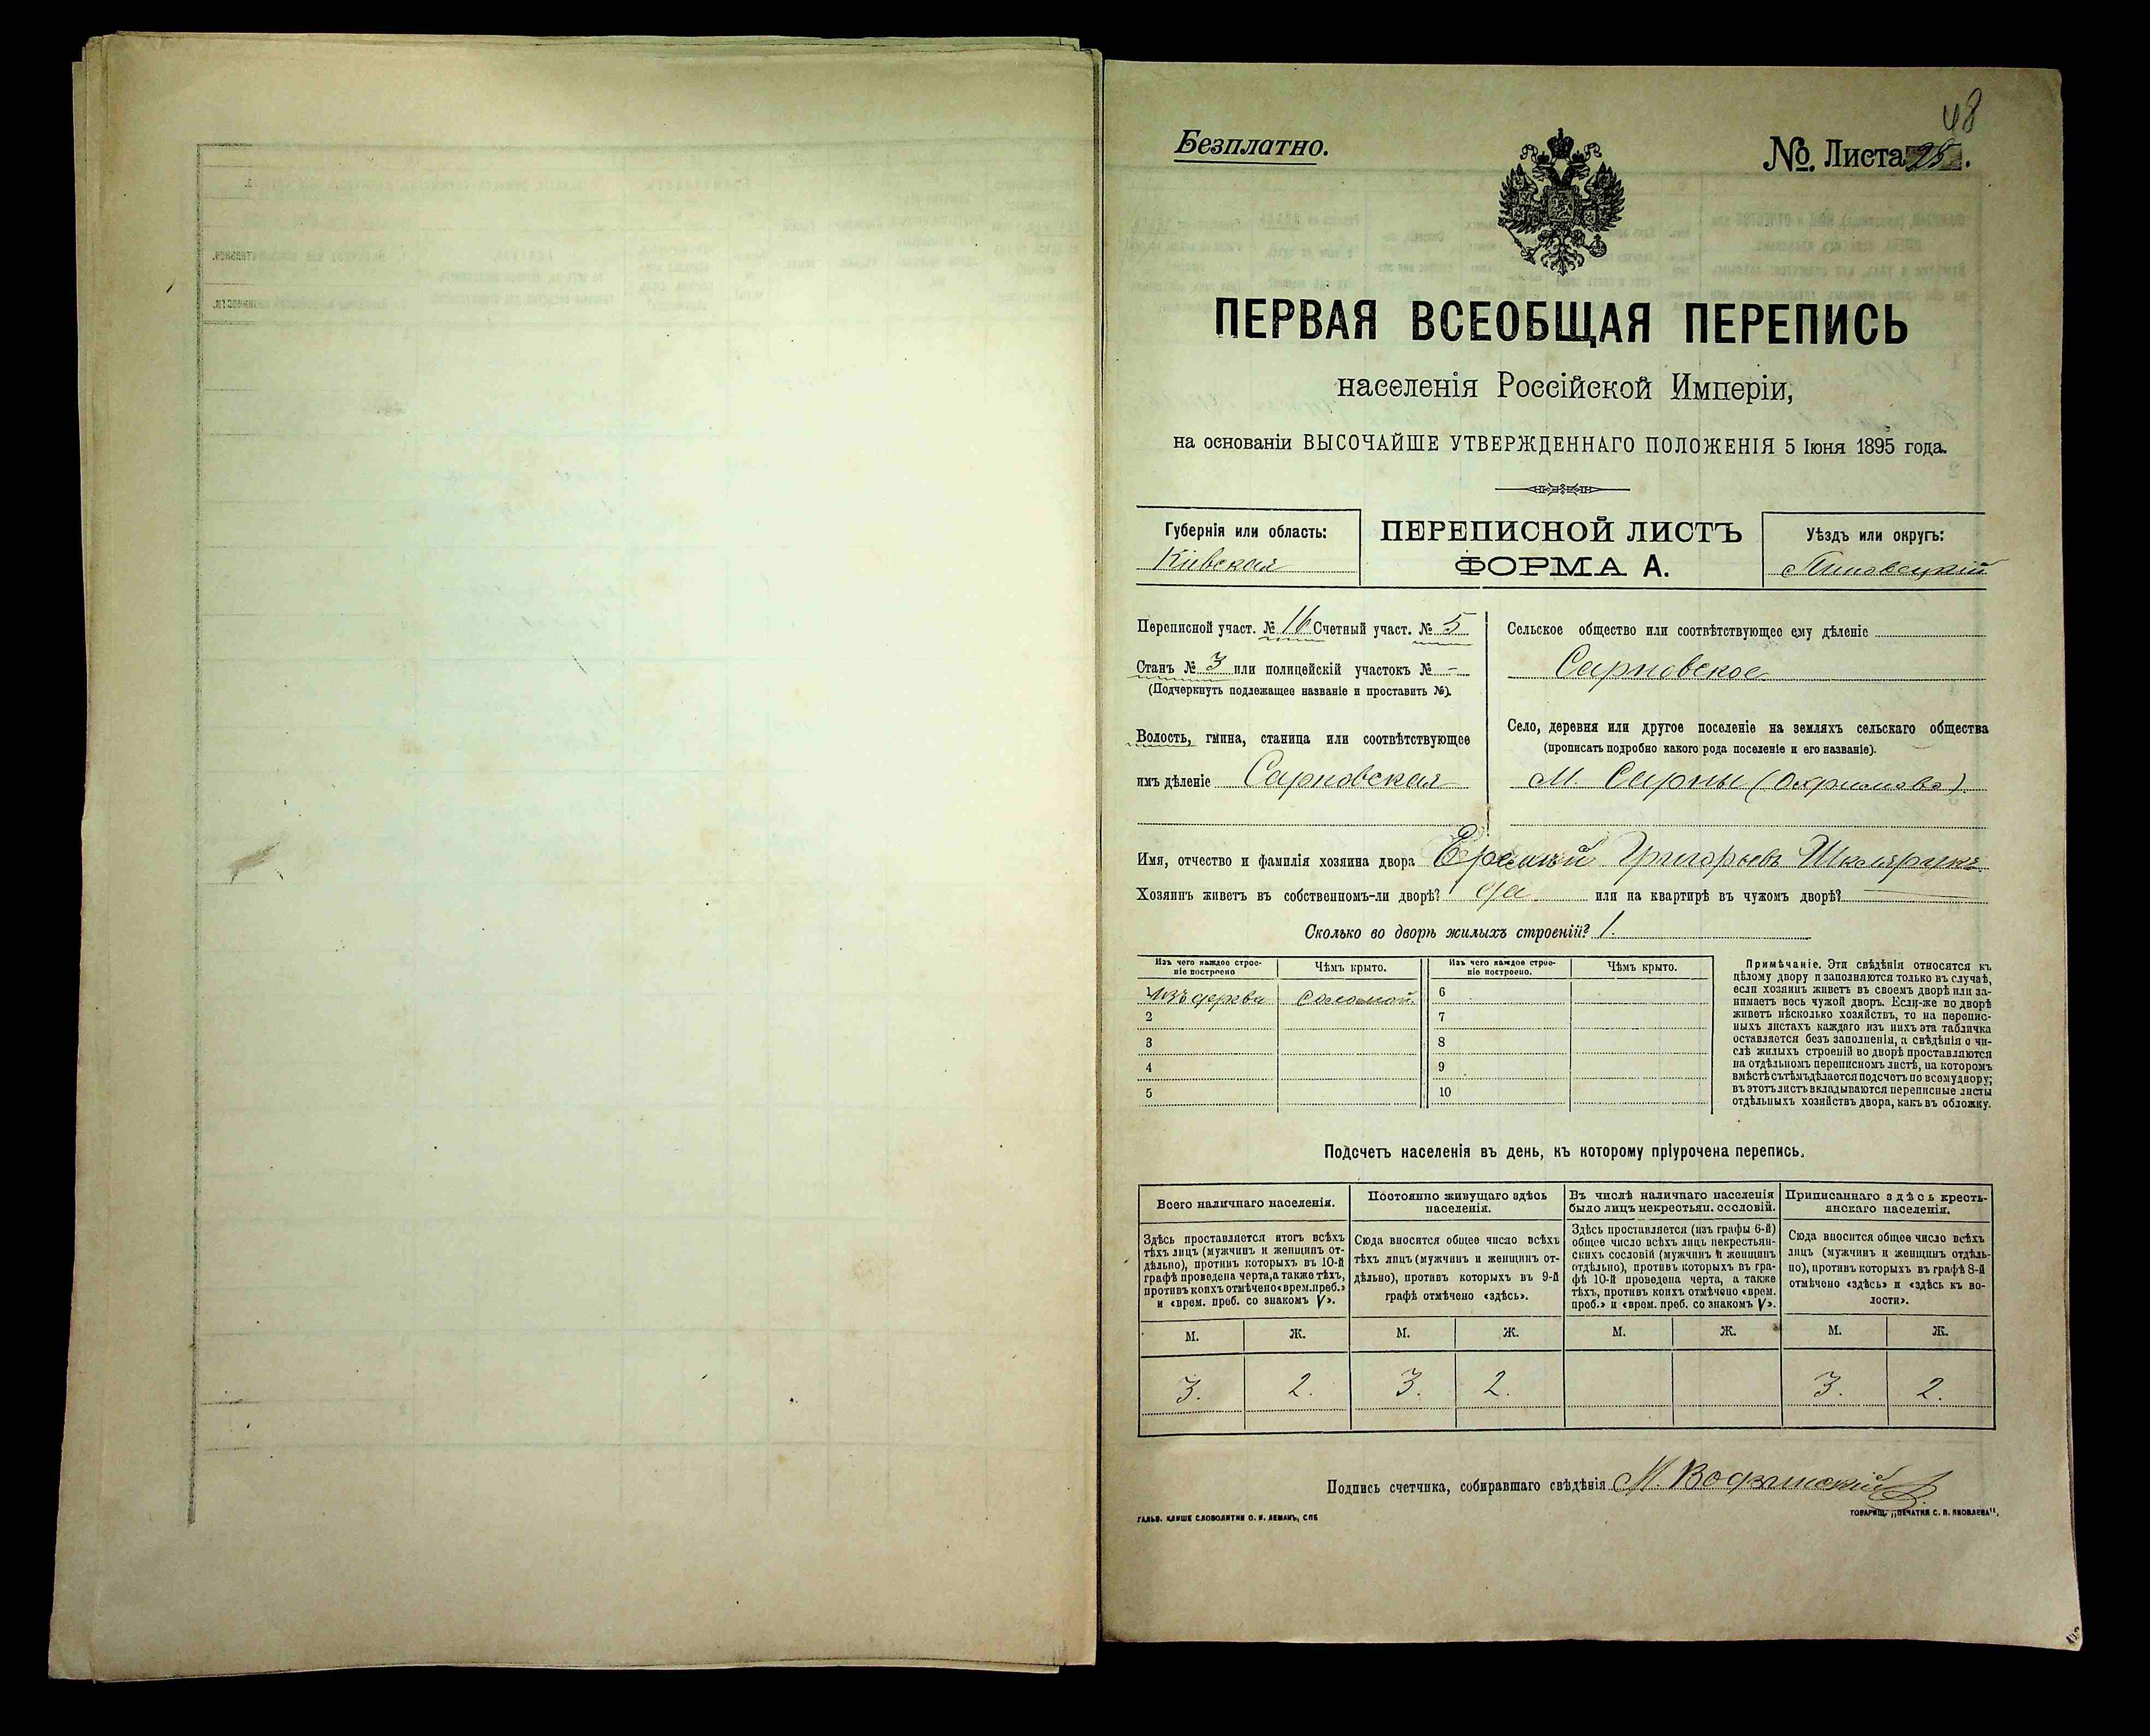 48
Безплатно.
№ Листа 25.
ПЕРВАЯ ВСЕОБЩАЯ ПЕРЕПИСЬ
населенія Россійской Имперіи,
на основаніи ВЫСОЧАЙШЕ УТВЕРЖДЕННАГО ПОЛОЖЕНІЯ 5 Іюня 1895 года.
Губернія или область:
Кіевская
ПЕРЕПИСНОЙ ЛИСТЪ
ФОРМА А.
Уѣздъ или округъ:
Липовецкій
Переписной участ. № 16 Счетный участ. № 5
Станъ № 3 или полицейскій участокъ № -
(Подчеркнуть подлежащее названіе и проставить №).
Волость, гмина, станица или соотвѣтствующее
имъ дѣленіе Сарновская
Сельское общество или соотвѣтствующее ему дѣленіе
Сарновское
Село, деревня или другое поселеніе на земляхъ сельскаго общества
(прописать подробно какого рода поселеніе и его названіе).
М. Сарны (Охримово).
Имя, отчество и фамилія хозяина двора Еремій Григорьевъ
Хозяинъ живетъ въ собственномъ-ли дворѣ? да или на квартирѣ въ чужомъ дворѣ?
Сколько во дворѣ жилыхъ строеній? 1.
Изъ чего каждое строе-
ніе построено
Чѣмъ крыто.
Изъ чего каждое строе-
ніе построено.
Чѣмъ крыто.
1 изъ дерева соломой 6
2 7
3 8
4 9
5 10
Примѣчаніе. Эти свѣдѣнія относятся къ
цѣлому двору и заполняются только въ случаѣ,
если хозяинъ живетъ въ своемъ дворѣ или за-
нимаетъ весь чужой дворъ. Если-же во дворѣ
живетъ нѣсколько хозяйствъ, то на перепис-
ныхъ листахъ каждаго изъ нихъ эта табличка
оставляется безъ заполненія, а свѣдѣнія о чи-
слѣ жилыхъ строеній во дворѣ проставляются
на отдѣльномъ переписномъ листѣ, на которомъ
вмѣстѣ съ тѣмъ дѣлается подсчетъ по всему двору;
въ этотъ листъ вкладываются переписные листы
отдѣльныхъ хозяйствъ двора, какъ въ обложку.
Подсчетъ населенія въ день, къ которому пріурочена перепись.
Всего наличнаго населенія.
Здѣсь проставляется итогъ всѣхъ
тѣхъ лицъ (мужчинъ и женщинъ от-
дѣльно), противъ которыхъ въ 10-й
графѣ проведена черта, а также тѣхъ,
противъ коихъ отмѣчено «врем. преб.»
и «врем. преб. со знакомъ V».
Постоянно живущаго здѣсь
населенія.
Сюда вносится общее число всѣхъ
тѣхъ лицъ (мужчинъ и женщинъ от-
дѣльно), противъ которыхъ въ 9-й
графѣ отмѣчено «здѣсь».
Въ числѣ наличнаго населенія
было лицъ некрестьян. сословій.
Здѣсь проставляется (изъ графы 6-й)
общее число всѣхъ лицъ некрестьян-
скихъ сословій (мужчинъ и женщинъ
отдѣльно), противъ которыхъ въ гра-
фѣ 10-й проведена черта, а также
тѣхъ, противъ коихъ отмѣчено «врем.
преб.» и «врем. преб. со знакомъ V».
Приписаннаго здѣсь кресть-
янскаго населенія.
Сюда вносится общее число всѣхъ
лицъ (мужчинъ и женщинъ отдѣль-
но), противъ которыхъ въ графѣ 8-й
отмѣчено «здѣсь» и «здѣсь къ во-
лости».
М. Ж. М. Ж. М. Ж. М. Ж.
3. 2. 3. 2. 3. 2.
Подпись счетчика, собиравшаго свѣдѣнія М. Водзинскій
ГАЛЬВ. КЛИШЕ СЛОВОЛИТНИ О. И. ЛЕМАНЪ, СПБ
ТОВАРИЩ. „ПЕЧАТНЯ С. П. ЯКОВЛЕВА“.